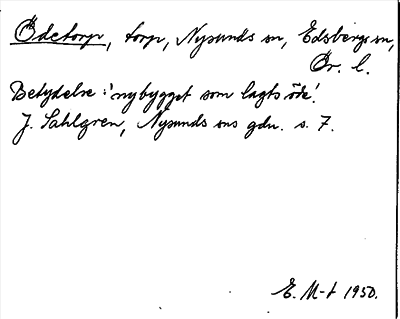 Ödetorp, torp, Nysunds sn, Edsbergs sn,
Ör. l.
Betydelse: 'nybygget som lagts öde'.
J. Sahlgren, Nysunds sns gdn. s. 7.
E. M-t 1950.